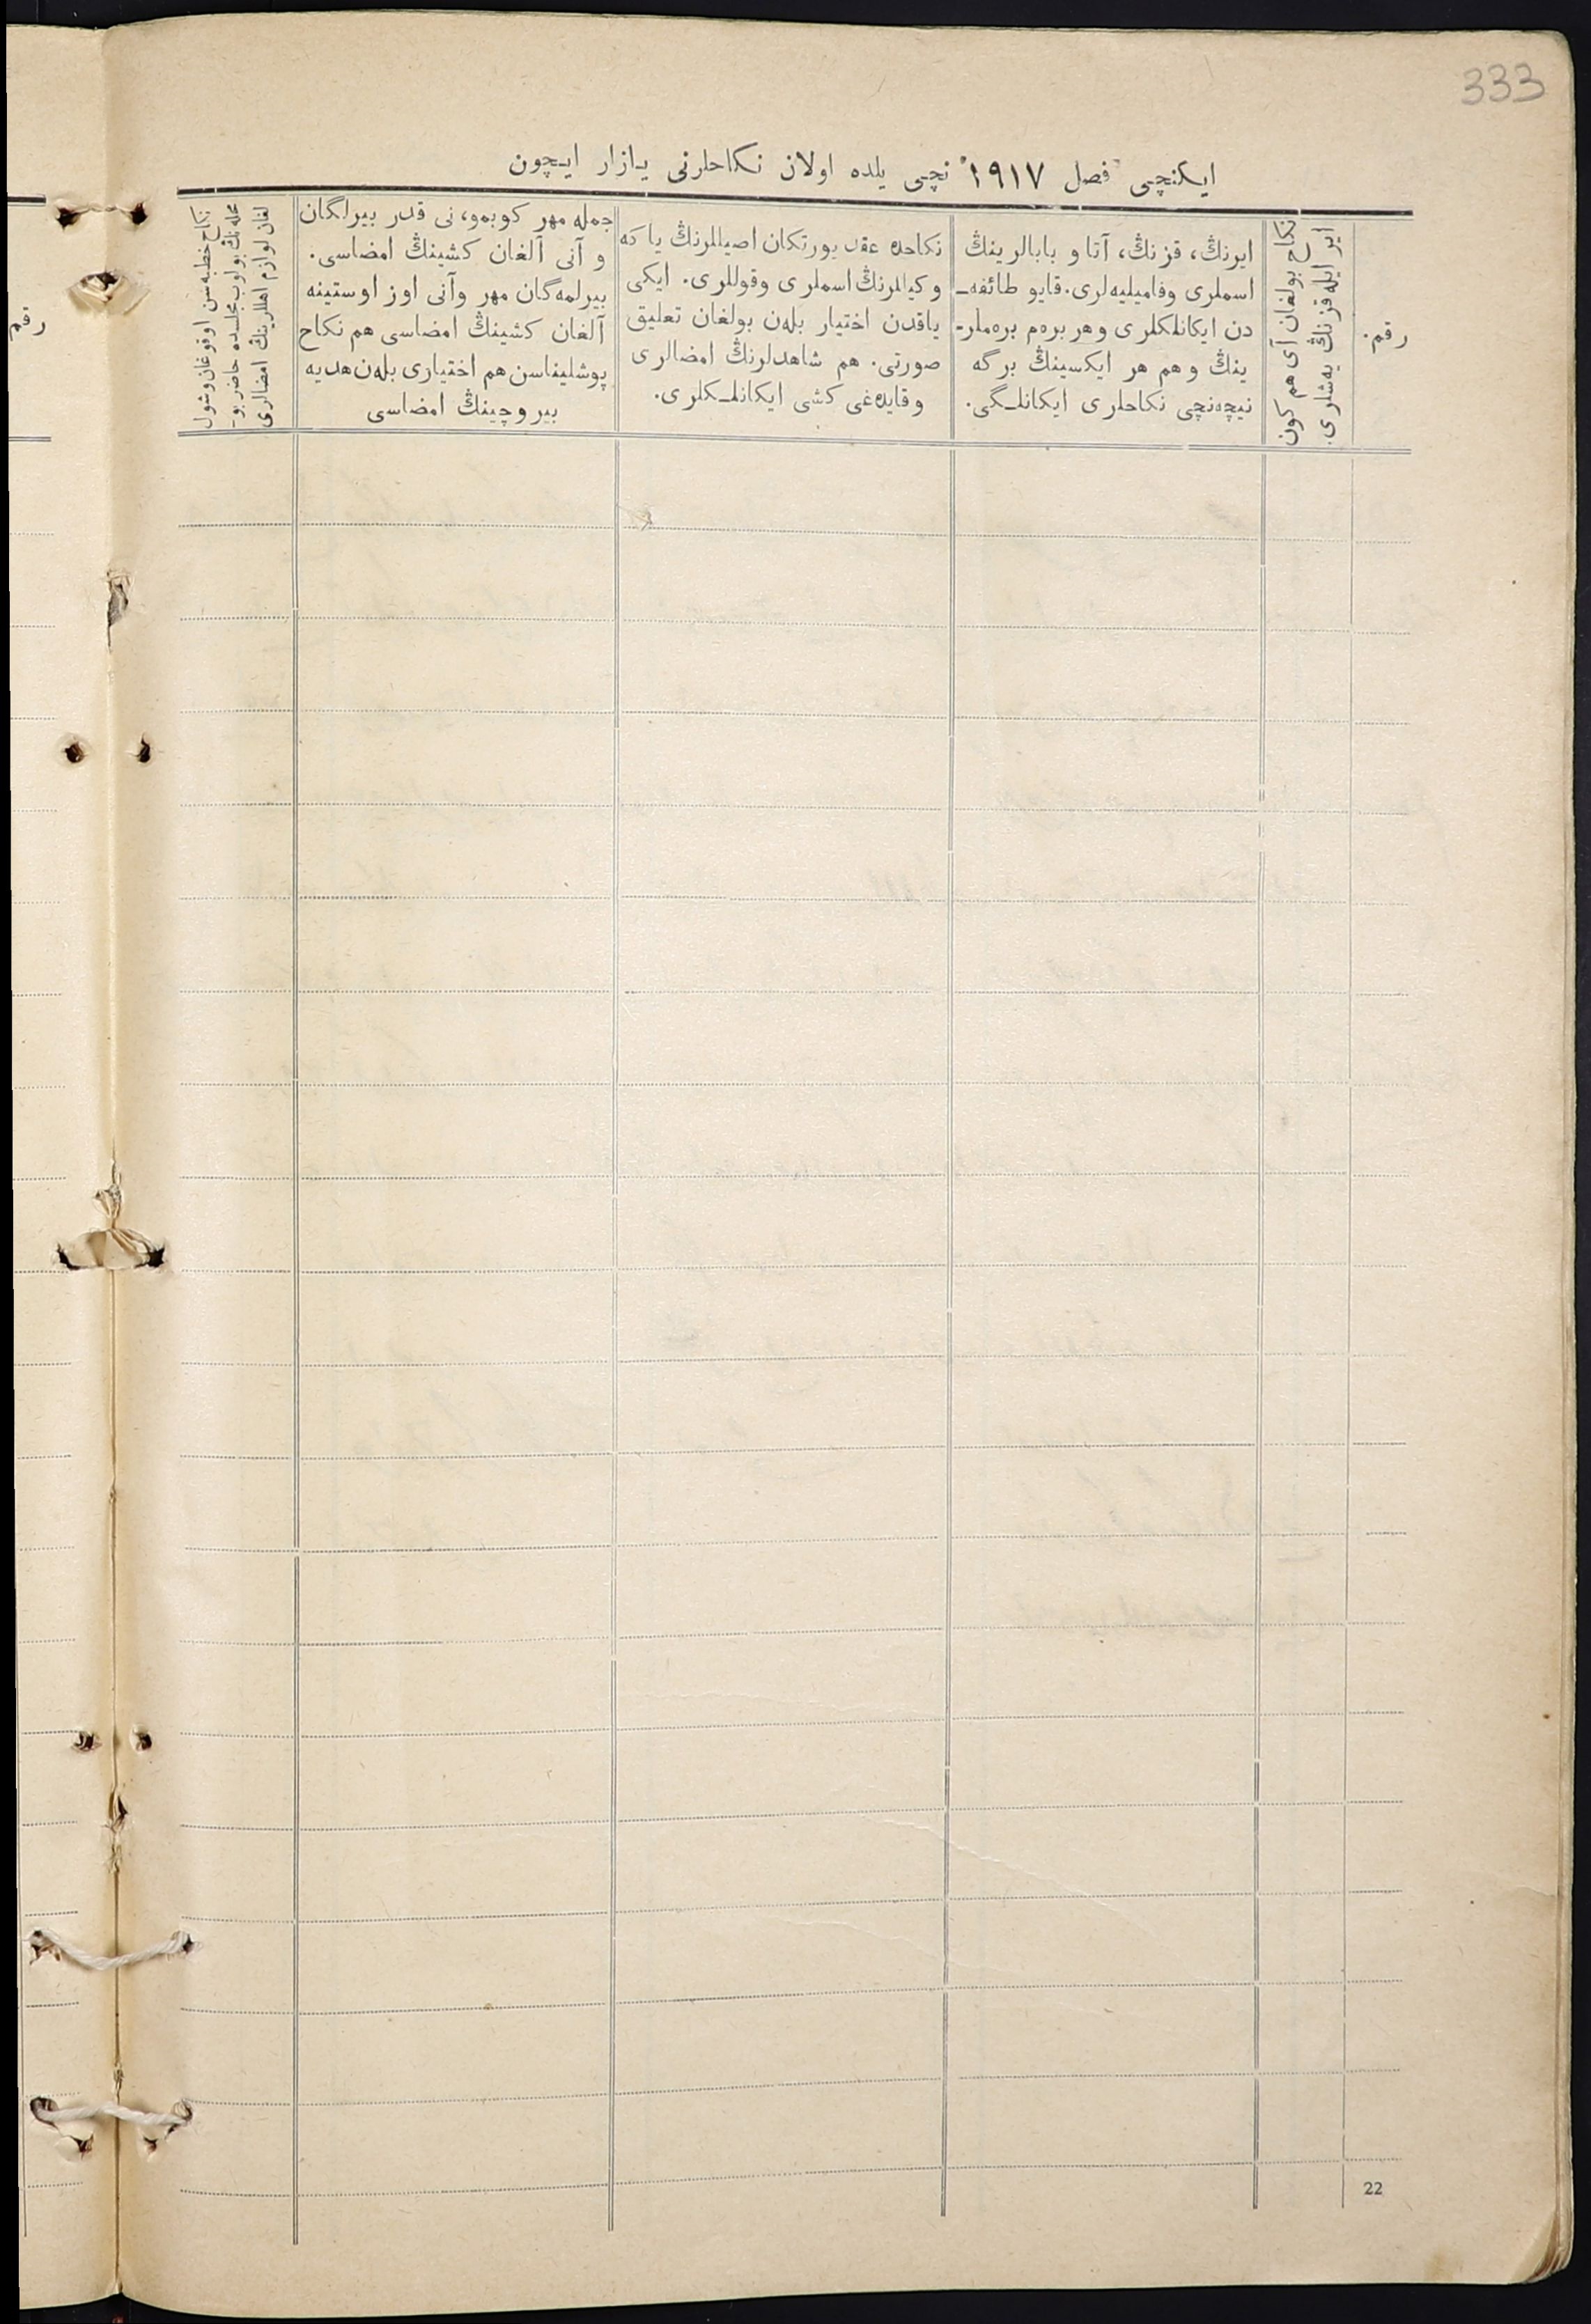 333
ایکنچی فصل ۱۹۱۷ نچی یلده اولان نکاحلرنی یازار ایچون
رقم.
نکاح بولغان آی هم کون
ایر ایله قزنڭ یه‌شلری.
ایرنڭ، قزنڭ، آتا و بابالرینڭ
اسملری وفامیلیه‌لری. قایو طائفه‌ـ
دن ایکانلکلری وهر بره‌م بره‌ملرـ
ینڭ و هم هر ایکسینڭ برگه
نیچه‌نچی نکاحلری ایکانلـگی.
نکاحده عقد یورتکان اصیللرنڭ یا که
وکیللرنڭ اسملری وقوللری. ایکی
یاقدن اختیار بله‌ن بولغان تعلیق
صورتی. هم شاهدلرنڭ امضالری
و قایده‌غی کشی ایکانلـکلری.
جمله مهر کوبمو، نی قدر بیرلگان
و آنی آلغان کشینڭ امضاسی.
بیرلمه‌گان مهر وآنی اوز اوستینه
آلغان کشینڭ امضاسی هم نکاح
پوشلیناسن هم اختیاری بله‌ن هدیه
بیروچینڭ امضاسی
نکاح خطبه‌سن اوقوغان وشول
محله‌نڭ بولوب مجلسده حاضر بوـ
لغان لوازم اهللرینڭ امضالری
رقم
22